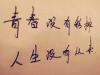 青春没有彩排
人生没有从来